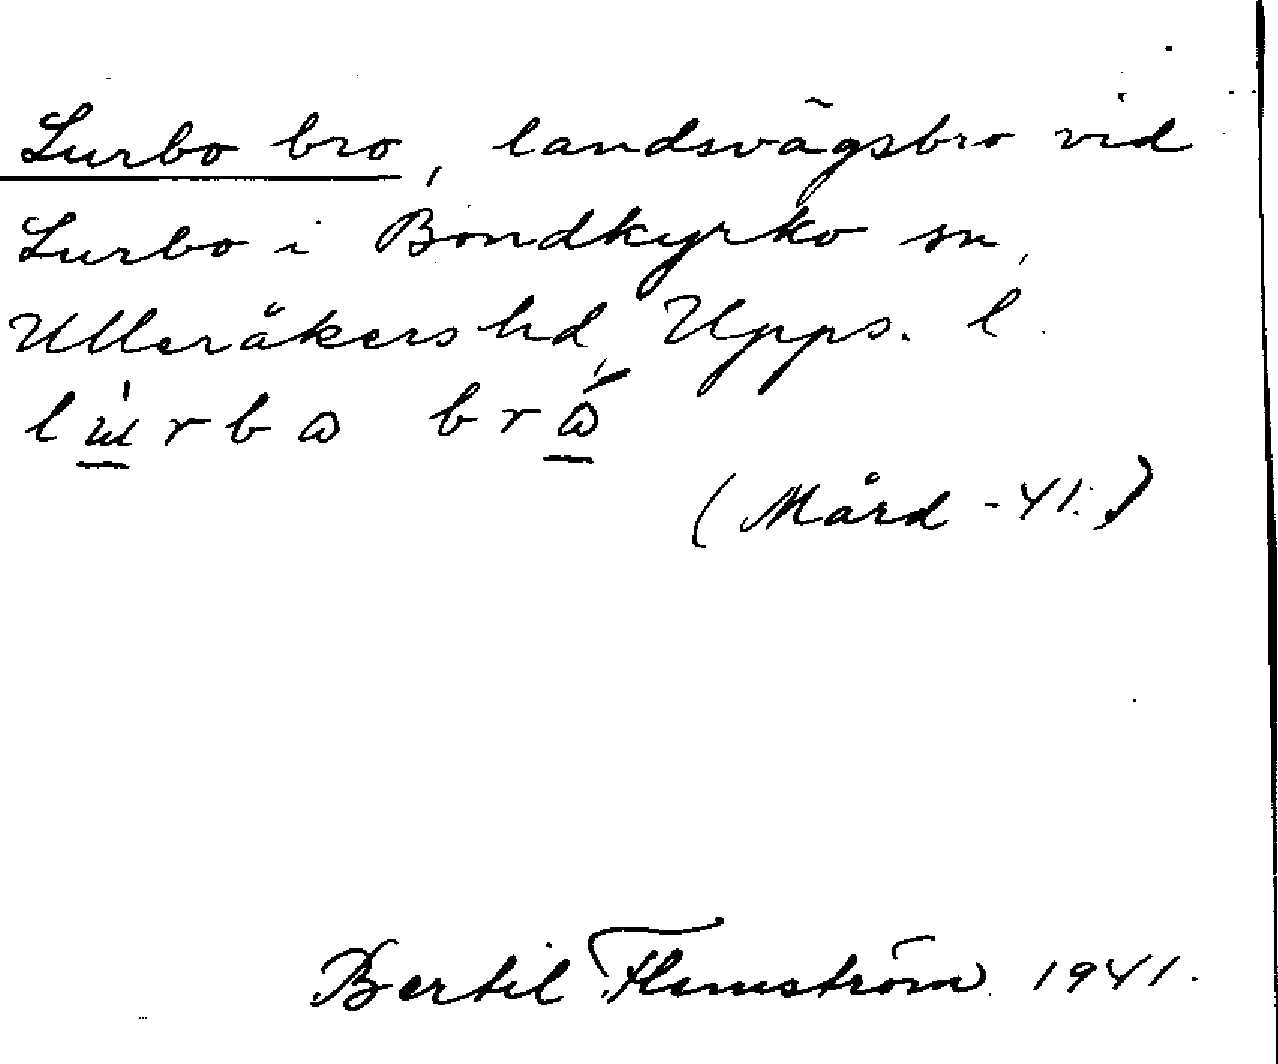 Lurbo bro, landsvägsbro vid
Lurbo i Bondkyrko sn,
Ulleråkers hd, Upps. l.
(Mård -41.)
Bertil Flemström 1941.